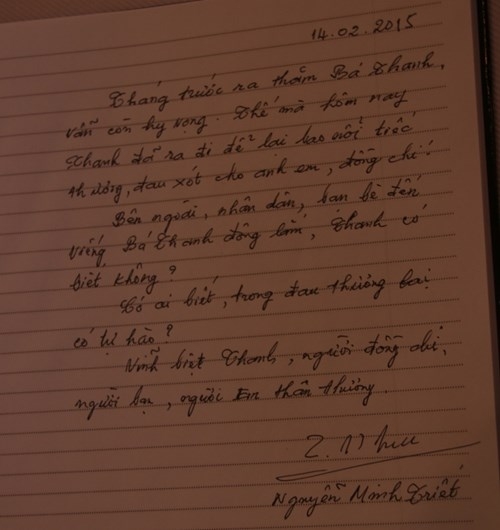 14.02.2015
Tháng trước ra thăm Bá Thanh,
vẫn còn hy vọng. Thế mà hôm nay
Thanh đã ra đi để lại bao nỗi tiếc
thương, đau xót cho anh em, đồng chí!
Bên ngoài, nhân dân, bạn bè đến
viếng Bá Thanh đông lắm, Thanh có
biết không?
Có ai biết, trong đau thương lại
có tự hào?
Vĩnh biệt Thanh, người đồng chí,
người bạn, người em thân thương.
Nguyễn Minh Triết